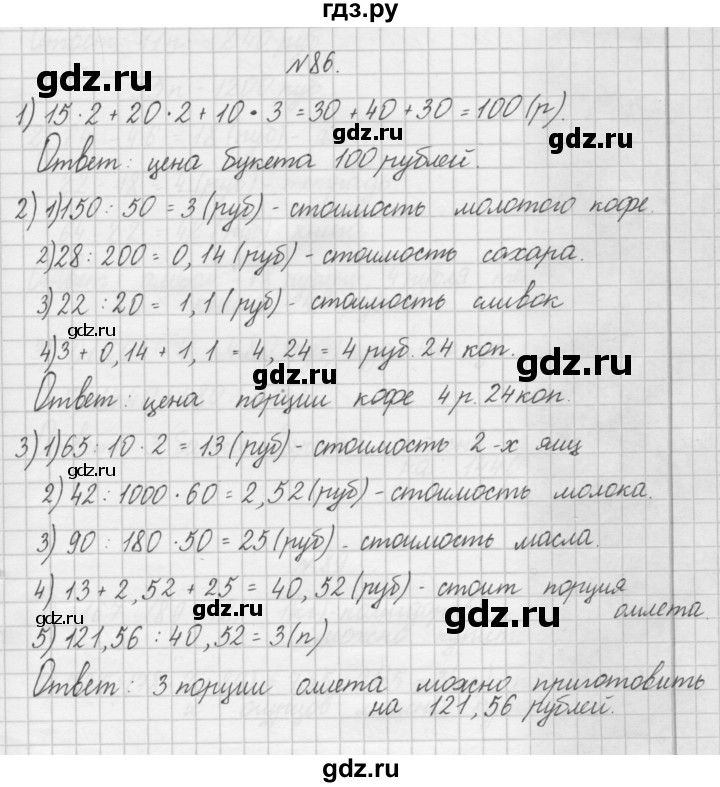 гдз.ру
№86.
gdz.ru
1) 15·2+20·2+10·3=30+40+30=100(р).
gdz.ru gdz.ru
Ответ: цена букета 100 рублей.
2) 1)150:50=3(руб)-стоимость молотого кофе.
2)28:200=0,14(руб)-стоимость сахара.
3)22:20=1,1(руб)-стоимость сливок
gdz.ru
4)3+0,14+1,1=4,24=4 руб. 24 коп.
gdz.ru gdz.ru
Ответ: цена порции кофе 4 р. 24 коп.
3) 1)65:10·2=13(руб)-стоимость 2-х яиц
gdz.ru gdz.ru
2) 42:1000·60=2,52(руб)-стоимость молока.
3) 90:180·50=25(руб)-стоимость масла.
4) 13+2,52+25=40,52(руб)-стоит порция
омлета.
gdz.ru gdz.ru gdz.ru
5) 121,56:40,52=3(п)
Ответ: 3 порции омлета можно приготовить
на 121,56 рублей.
gdz.ru gdz.ru